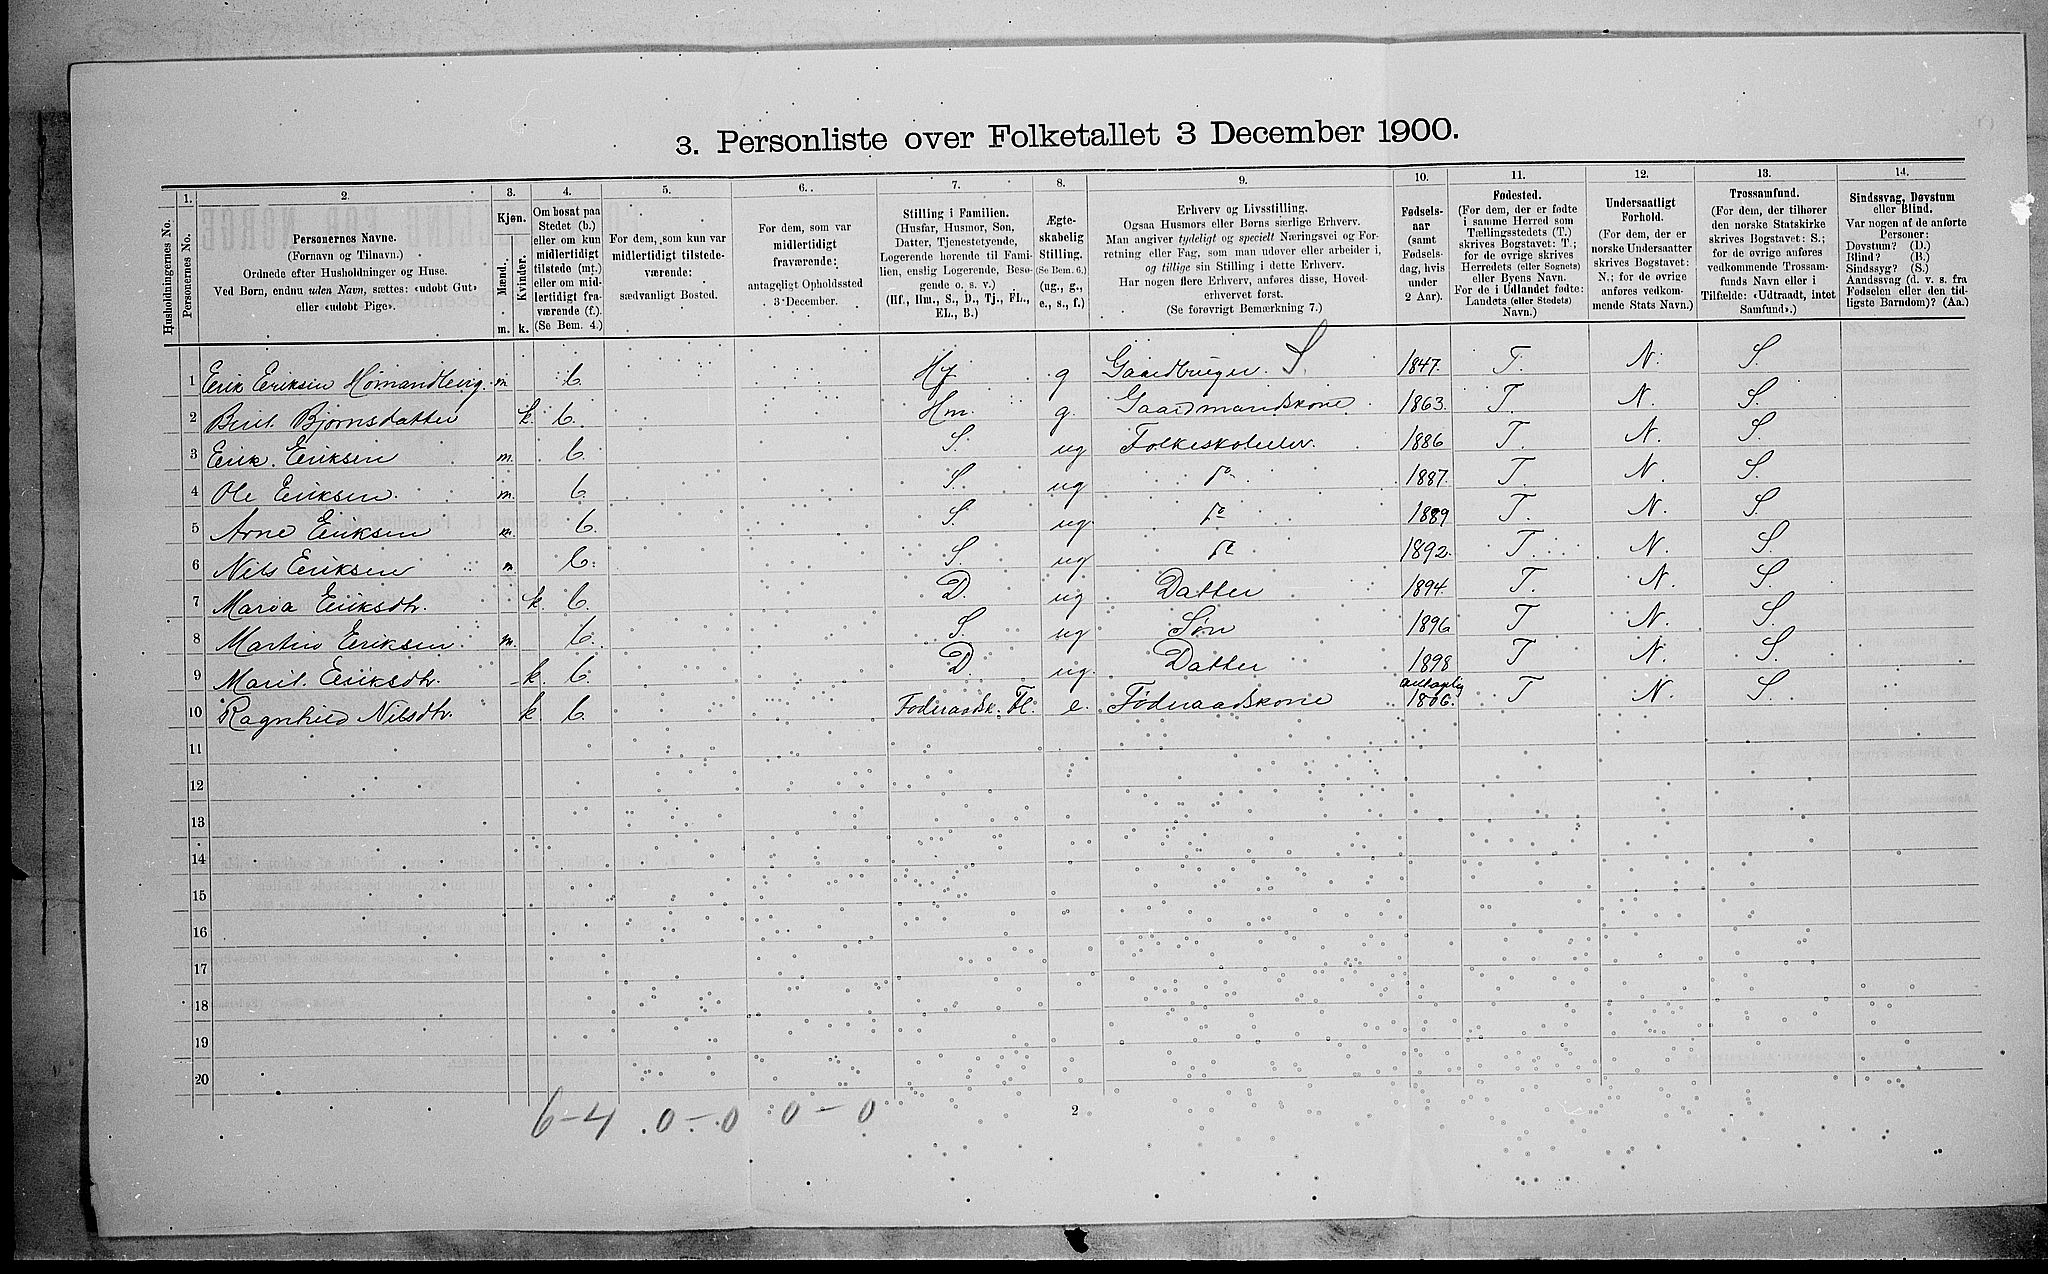 3. Personliste over Folketallet 3 December 1900.
1. 2. 3. 4. 5. 6. 7. 8. 9. 10. 11. 12. 13. 14.
Husholdningernes No.
Personernes No.
Personernes Navne.
(Fornavn og Tilnavn.)
Ordnede efter Husholdninger og Huse.
Ved Børn, endnu uden Navn, sættes: «udøbt Gut»
eller «udøbt Pige».
Kjøn.
Mænd.
Kvinder.
m. k.
Om bosat paa
Stedet (b.)
eller om kun
midlertidigt
tilstede (mt.)
eller om mid-
lertidigt fra-
værende (f.).
(Se Bem. 4.)
For dem, som kun var
midlertidigt tilstede-
værende:
sædvanligt Bosted.
For dem, som var
midlertidigt
fraværende:
antageligt Opholdssted
3 December.
Stilling i Familien.
(Husfar, Husmor, Søn,
Datter, Tjenestetyende,
Logerende hørende til Fami-
lien, enslig Logerende, Besø-
gende o. s. v.)
(Hf., Hm., S., D., Tj., FL.,
EL., B.)
Ægte-
skabelig
Stilling.
(Se Bem. 6.)
(ug., g.,
e., s., f.)
Erhverv og Livsstilling.
Ogsaa Husmors eller Børns særlige Erhverv.
Man angiver tydeligt og specielt Næringsvei og For-
retning eller Fag, som man udøver eller arbeider i,
og tillige sin Stilling i dette Erhverv.
Har nogen flere Erhverv, anføres disse, Hoved-
erhvervet først.
(Se forøvrigt Bemærkning 7.)
Fødsels-
aar
(samt
Fødsels-
dag, hvis
under
2 Aar).
Fødested.
(For dem, der er fødte
i samme Herred som
Tællingsstedets (T.)
skrives Bogstavet: T.;
for de øvrige skrives
Herredets (eller Sognets)
eller Byens Navn.
For de i Udlandet fødte:
Landets (eller Stedets)
Navn.)
Undersaatligt
Forhold.
(For dem, der er
norske Undersaatter
skrives Bogstavet:
N.; for de øvrige
anføres vedkom-
mende Stats Navn.)
Trossamfund.
(For dem, der tilhører
den norske Statskirke
skrives Bogstavet: S.;
for de øvrige anføres
vedkommende Trossam-
funds Navn eller i
Tilfælde: «Udtraadt, intet
Samfund».)
Sindssvag, Døvstum
eller Blind.
Var nogen af de anførte
Personer:
Døvstum? (D.)
Blind? (B.)
Sindssyg? (S.)
Aandssvag (d. v. s. fra
Fødselen eller den tid-
ligste Barndom)? (Aa.)
1 Erik Eriksen m. b. Hf g Gaardbruger. S. 1847. T. N. S.
2 Berit Bjørnsdatter k. b. Hm. g. Gaardmandskone 1863. T. N. S.
3 Erik. Eriksen m. b. S. ug Folkeskoleelev. 1886 T. N. S.
4 Ole Eriksen. m. b. S. ug do 1887. T. N. S.
5 Arne Eriksen m. b. S. ug. do 1889 T. N. S
6 Nils Eriksen m b. S ug do 1892. T. N. S.
7 Maria Eriksdtr. k. b. D. ug Datter 1894. T. N. S.
8 Martin Eriksen m. b. S. ug Søn 1896 T N. S.
9 Marit. Eriksdtr. k. b. D. ug. Datter 1898 T N. S.
10 Ragnhild Nilsdtr. k b. Føderaadsk. Fl. e. Føderaadskone antagelig 1806. T N. S.
11
12
13
14
15
16
17
18
19
20
6-4 0-0 0-0
2